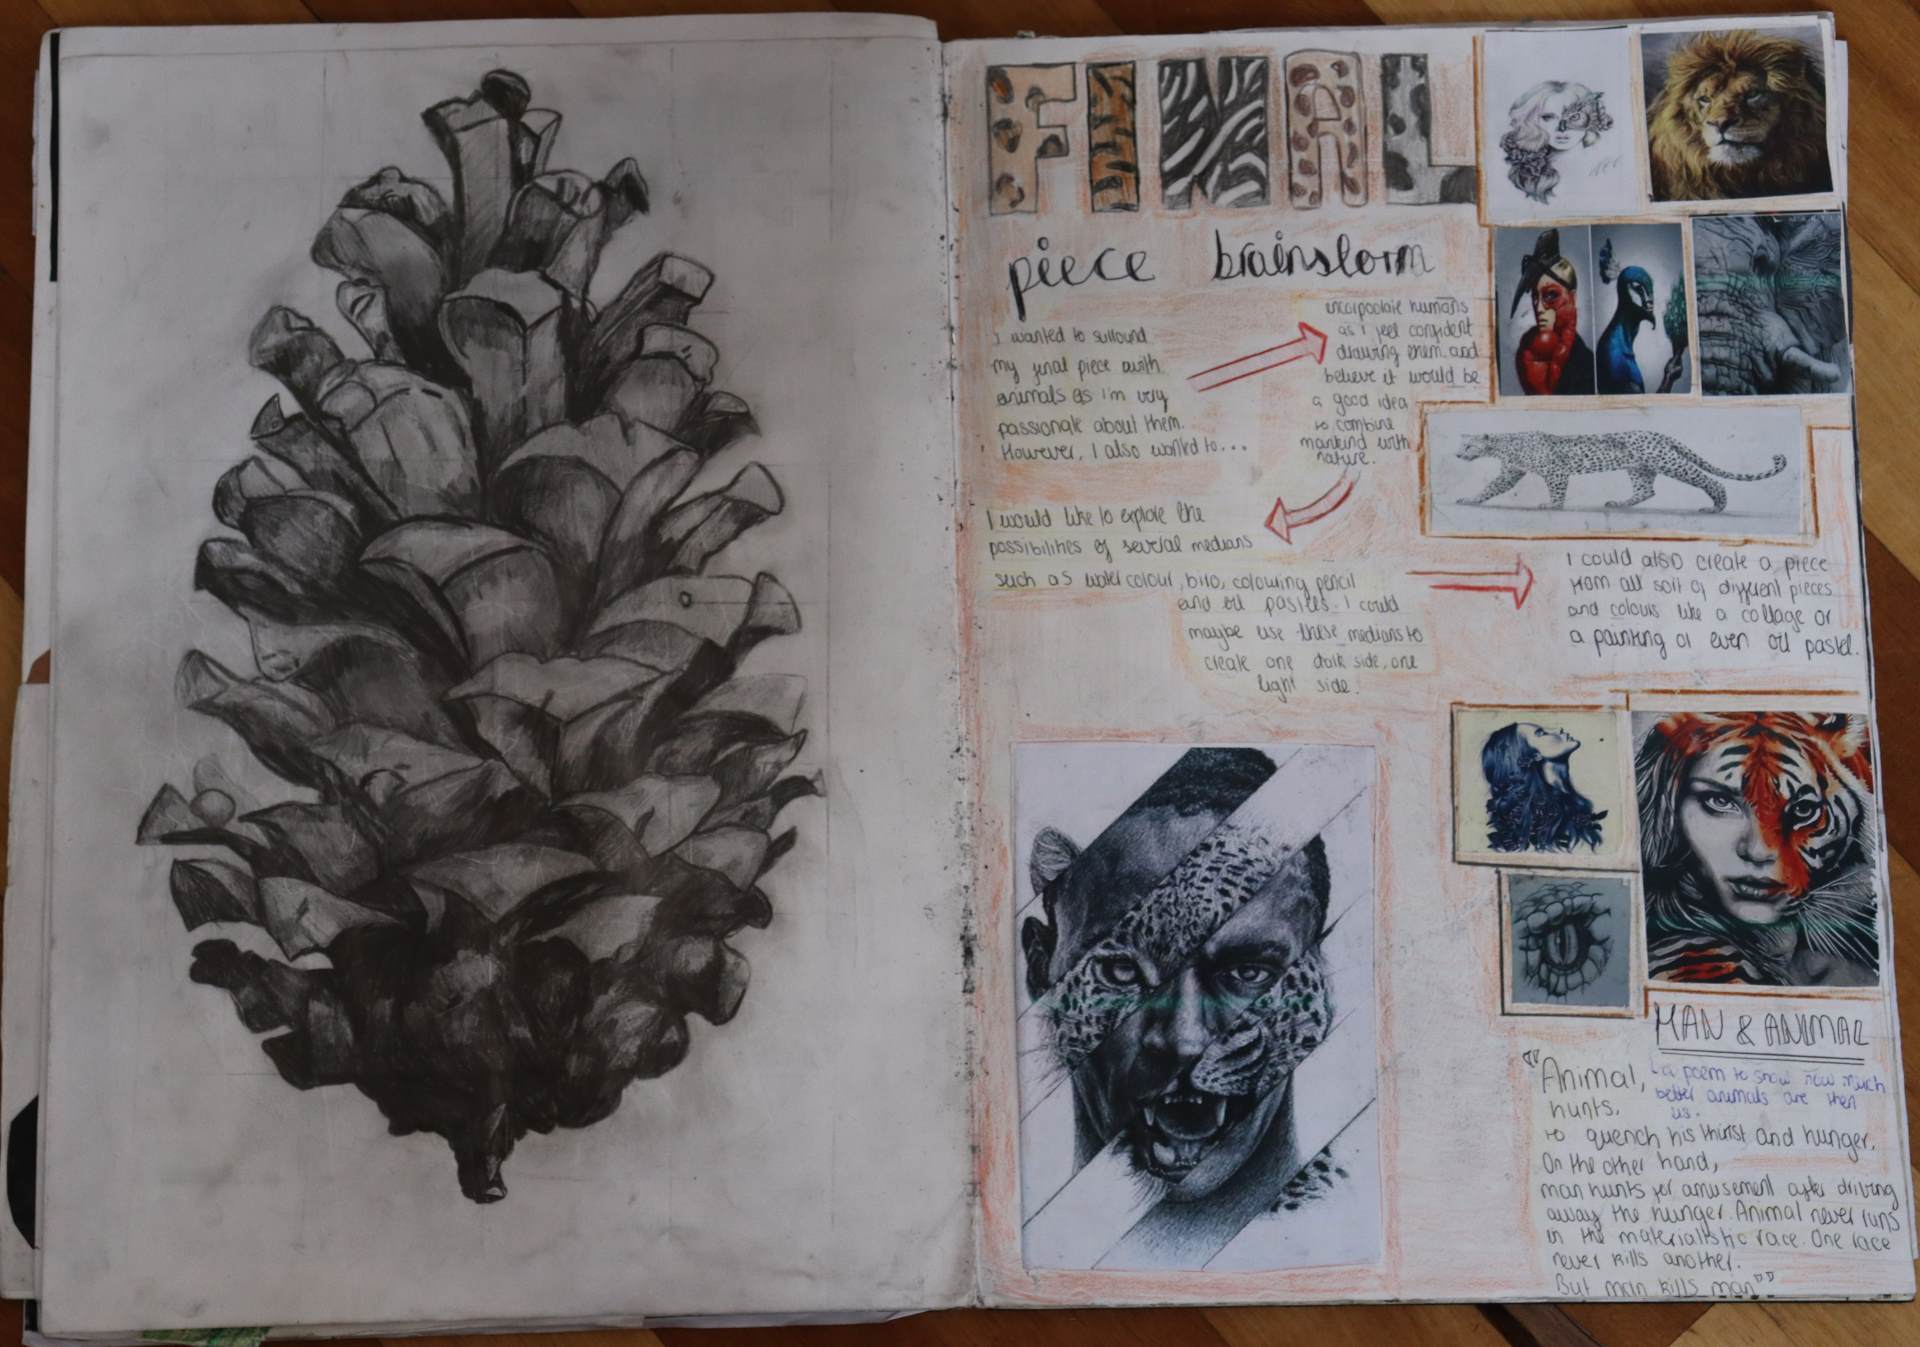 FINAL
piece brainstorm
I wanted to surround
my final piece with
animals as I'm very
passionate about them.
However, I also wanted to...
incorpoolate humans
as I feel confident
drawing them and
believe it would be
a good idea
to combine
mankind with
nature.
I would like to explore the
possibilities of several medians
such as watercolour, biro, colouring pencil
and oil pastles. I could
maybe use these medians to
create one dark side, one
light side.
I could also create a piece
from all sort of different pieces
and colours like a collage or
a painting or even oil pastel.
MAN & ANIMAL
a poem to show how much
better animals are then
us.
"Animal,
hunts,
to quench his thirst and hunger.
On the other hand,
man hunts for amusement after driving
away the hunger. Animal never runs
in the materialistic race. One race
never kills another.
But man kills man"